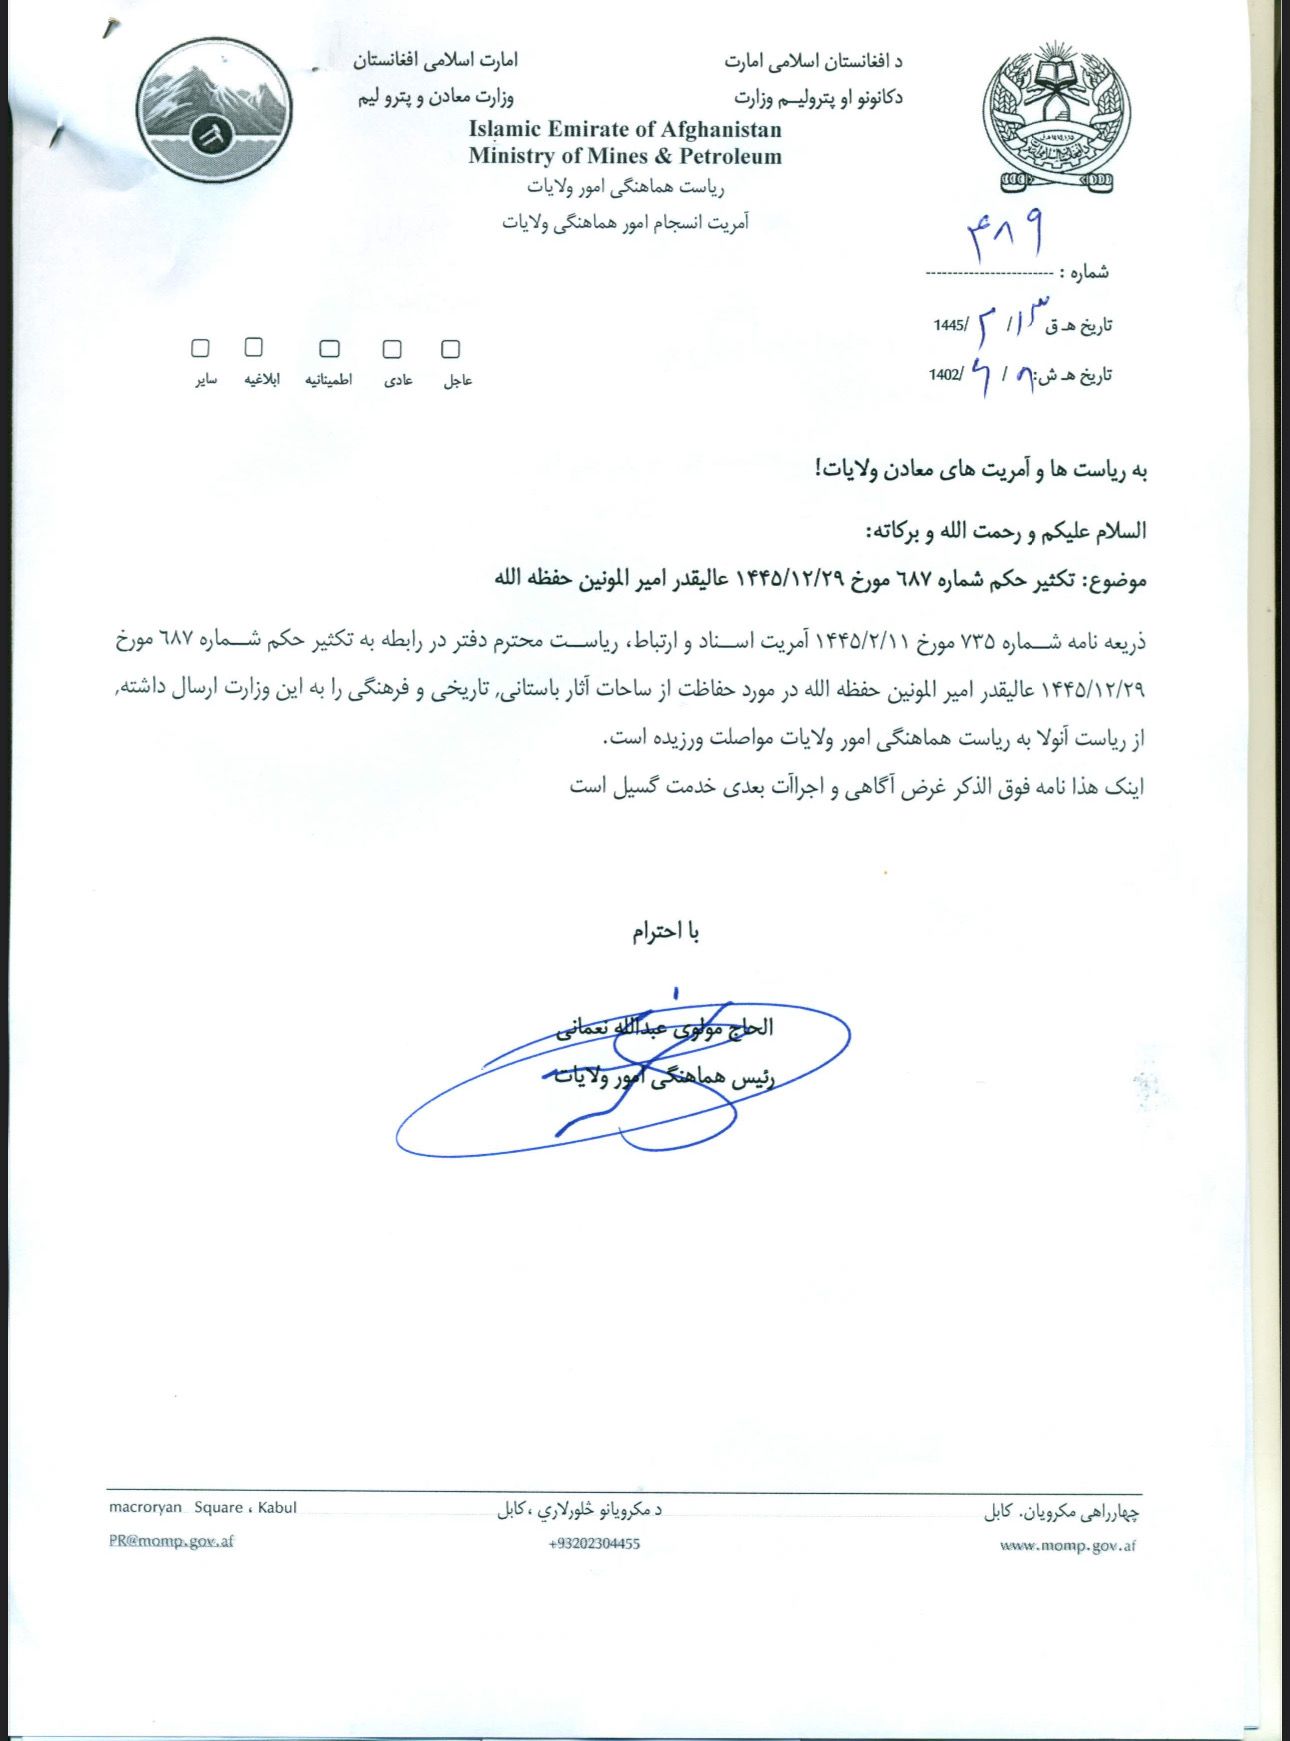 د افغانستان اسلامی امارت
امارت اسلامی افغانستان
دکانونو او پترولیــم وزارت
وزارت معادن و پترو لیم
Islamic Emirate of Afghanistan
Ministry of Mines & Petroleum
ریاست هماهنگی امور ولایات
آمریت انسجام امور هماهنگی ولایات
۴۸۹
شماره : ------------------------
تاریخ هـ ق ۱۳/ ۲/ 1445
تاریخ هـ ش: ۸/ ۶/ 1402
عاجل عادی اطمینانیه ابلاغیه سایر
به ریاست ها و آمریت های معادن ولایات!
السلام علیکم و رحمت الله و برکاته:
موضوع: تکثیر حکم شماره ٦٨٧ مورخ ۱۴۴۵/۱۲/۲۹ عالیقدر امیر المونین حفظه الله
ذریعه نامه شــماره ۷۳۵ مورخ ۱۴۴۵/۲/۱۱ آمریت اســناد و ارتباط، ریاســت محترم دفتر در رابطه به تکثیر حکم شــماره ٦٨٧ مورخ
۱۴۴۵/۱۲/۲۹ عالیقدر امیر المونین حفظه الله در مورد حفاظت از ساحات آثار باستانی, تاریخی و فرهنگی را به این وزارت ارسال داشته,
از ریاست آنولا به ریاست هماهنگی امور ولایات مواصلت ورزیده است.
اینک هذا نامه فوق الذکر غرض آگاهی و اجراآت بعدی خدمت گسیل است
با احترام
الحاج مولوی عبدالله نعمانی
رئیس هماهنگی امور ولایات
چهارراهی مکرویان. کابل
د مکرویانو څلورلارې ،کابل
macroryan Square ، Kabul
www.momp.gov.af
+93202304455
PR@momp.gov.af